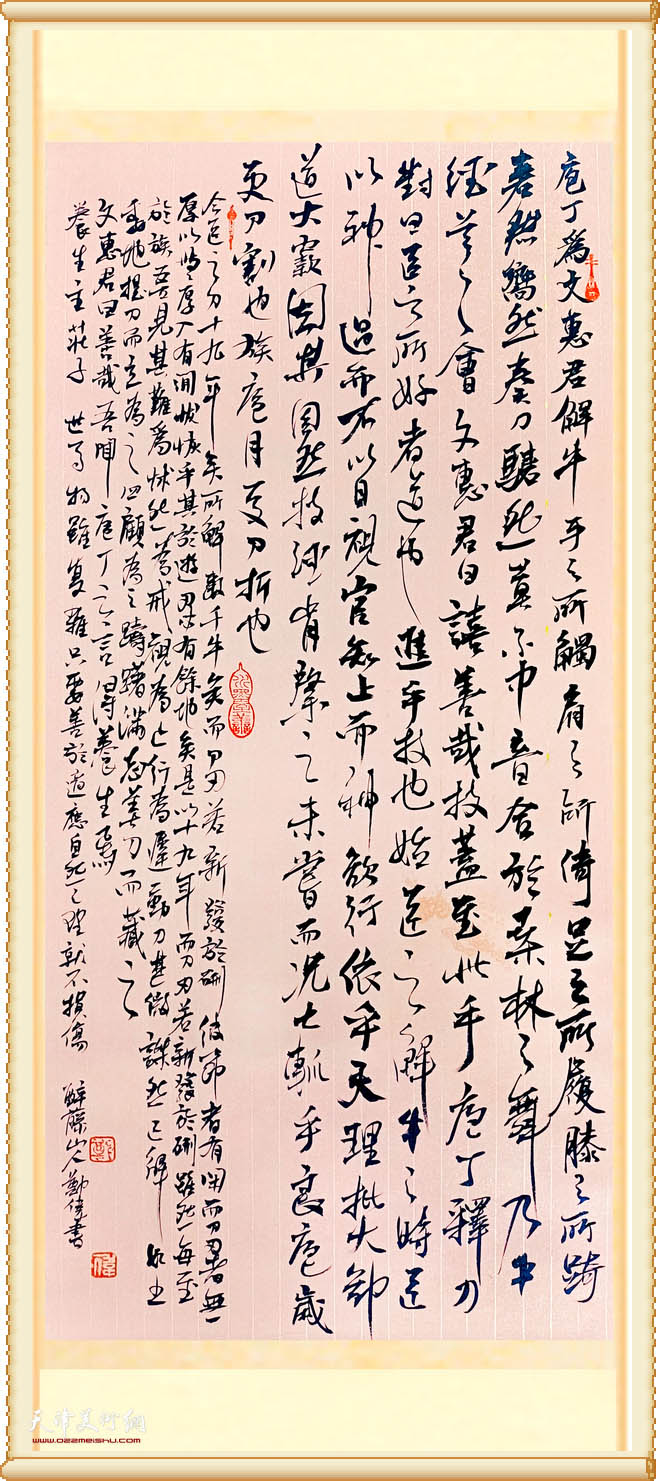 庖丁爲文惠君解牛手之所觸肩之所倚足之所履膝之所踦
砉然嚮然奏刀騞然莫不中音合於桑林之舞乃中
經首之會文惠君曰譆善哉技蓋至此乎庖丁釋刀
對曰臣之所好者道也進乎技也始臣之解牛之時臣
以神遇而不以目視官知止而神欲行依乎天理批大郤
道大窾因其固然技經肯綮之未嘗而況大軱乎良庖歲
更刀割也族庖月更刀折也
今臣之刀十九年矣所解數千牛矣而刀刃若新發於硎彼節者有間而刀刃者無
厚以無厚入有間恢恢乎其於遊刃必有餘地矣是以十九年而刀刃若新發於硎雖然每至
於族吾見其難爲怵然爲戒視爲止行爲遲動刀甚微謋然已解如土
委地提刀而立爲之四顧爲之躊躇滿志善刀而藏之
文惠君曰善哉吾聞庖丁之言得養生焉
養生主莊子 世事物雖復雜只要善於適應自然之理就不損傷 醉藤山人鄭偉書
天津美術網
www.022meishu.com